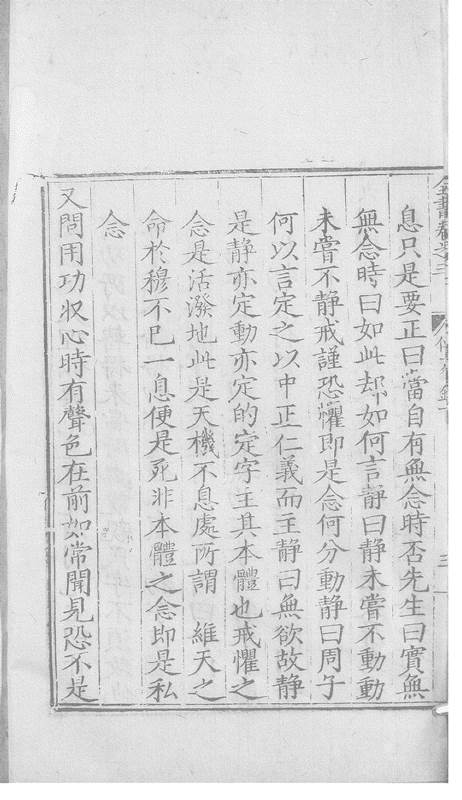 全書卷之三
傳習錄下
三
息只是要正曰當自有無念時否先生曰實無
無念時曰如此却如何言靜曰静未嘗不動動
未嘗不静戒謹恐懼即是念何分動静曰周子
何以言定之以中正仁義而主静曰無欲故静
是静亦定動亦定的定字主其本體也戒懼之
念是活潑地此是天機不息處所謂維天之
命於穆不已一息便是死非本體之念即是私
念
又問用功收心時有聲色在前如常聞見恐不是